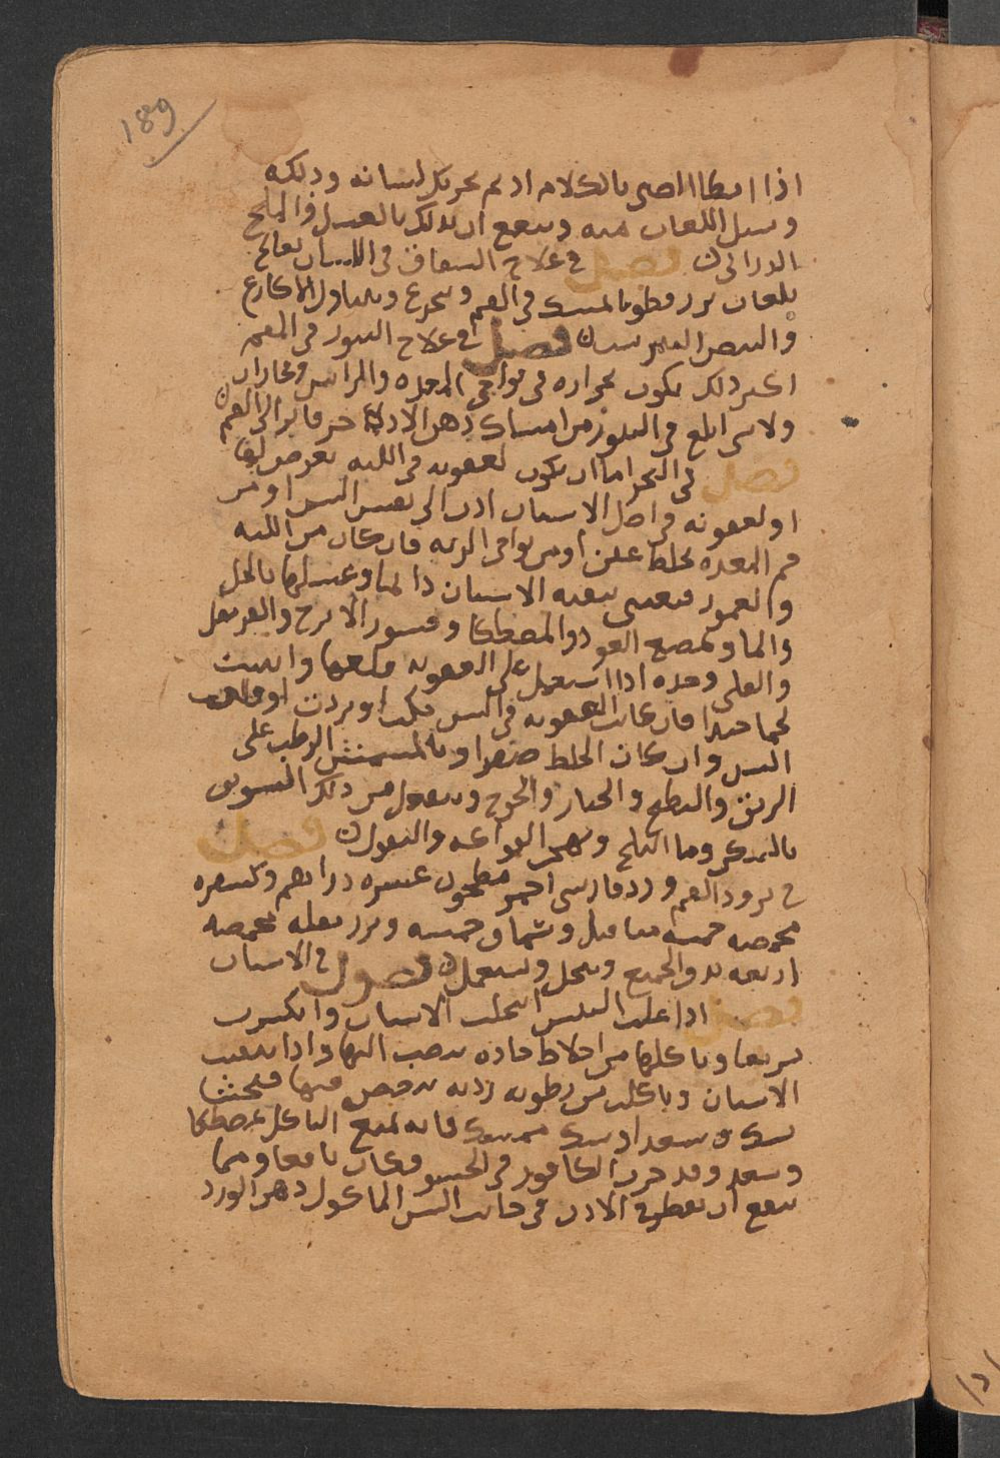 189
اذا ابطا الصبي بالكلام ادم تحريك لسانه ودلكه
وسيل اللعاب منه وينفع ان يدلك بالعسل والملح
الدراني فصل في علاج الشقاق في اللسان يعالج
بلعاب بزر قطونا يمسك في الفم ويتجرع ويتناول الاكارع
والبيض النيمرشت فصل في علاج البثور في الفم
اكثر ذلك يكون لحرارة في نواحي المعدة والراس وبخارات
ولا شي ابلغ في البثور من امساك دهن الاذخر فاترا في الفم
فصل في البخر اما ان يكون لعفونة في اللثة تعرض لها
او لعفونة في اصل الاسنان ادت الى نفس السن او من
فم المعدة لخلط عفن او من نواحي الرئة فان كان من اللثة
والعمور فيعنى بتنقية الاسنان دائما وغسلها بالخل
والما ويمضغ العود والمصطكا وقشور الاترج والقرنفل
والقلي وحده اذا استعمل على العفونة قلعها وانبت
لحما جيدا فان كانت العفونة في السن قلعت او بردت او
السن وان كان الخلط صفراويا المشمش الرطب على
الريق والبطيخ والخيار والخوخ وبدل من ذلك السويق
بالسكر وما الثلج ويهجر البواعث والبقول فصل
في برود الفم ورد فارسي احمر مطحون عشرة دراهم وكسفرة
محمصة خمسة مثاقيل وسماق خمسة وبزر بقلة محمصة
اربعة يدق الجميع وينخل ويستعمل فصول في الاسنان
فصل اذا غلب اليبس انحلت الاسنان وانكسرت
سريعا وتاكلها من اخلاط حادة تنصب اليها واذا نقيت
الاسنان وتاكلت من رطوبة ردية تدخص فيها فتحشا
بسك وسعد او سك فانه يمنع التاكل بمصطكا
وسعد وقد جرب الكافور في الحشو فكان نافعا ومما
ينفع ان يقطر في الاذن في جانب السن الماكول دهن الورد